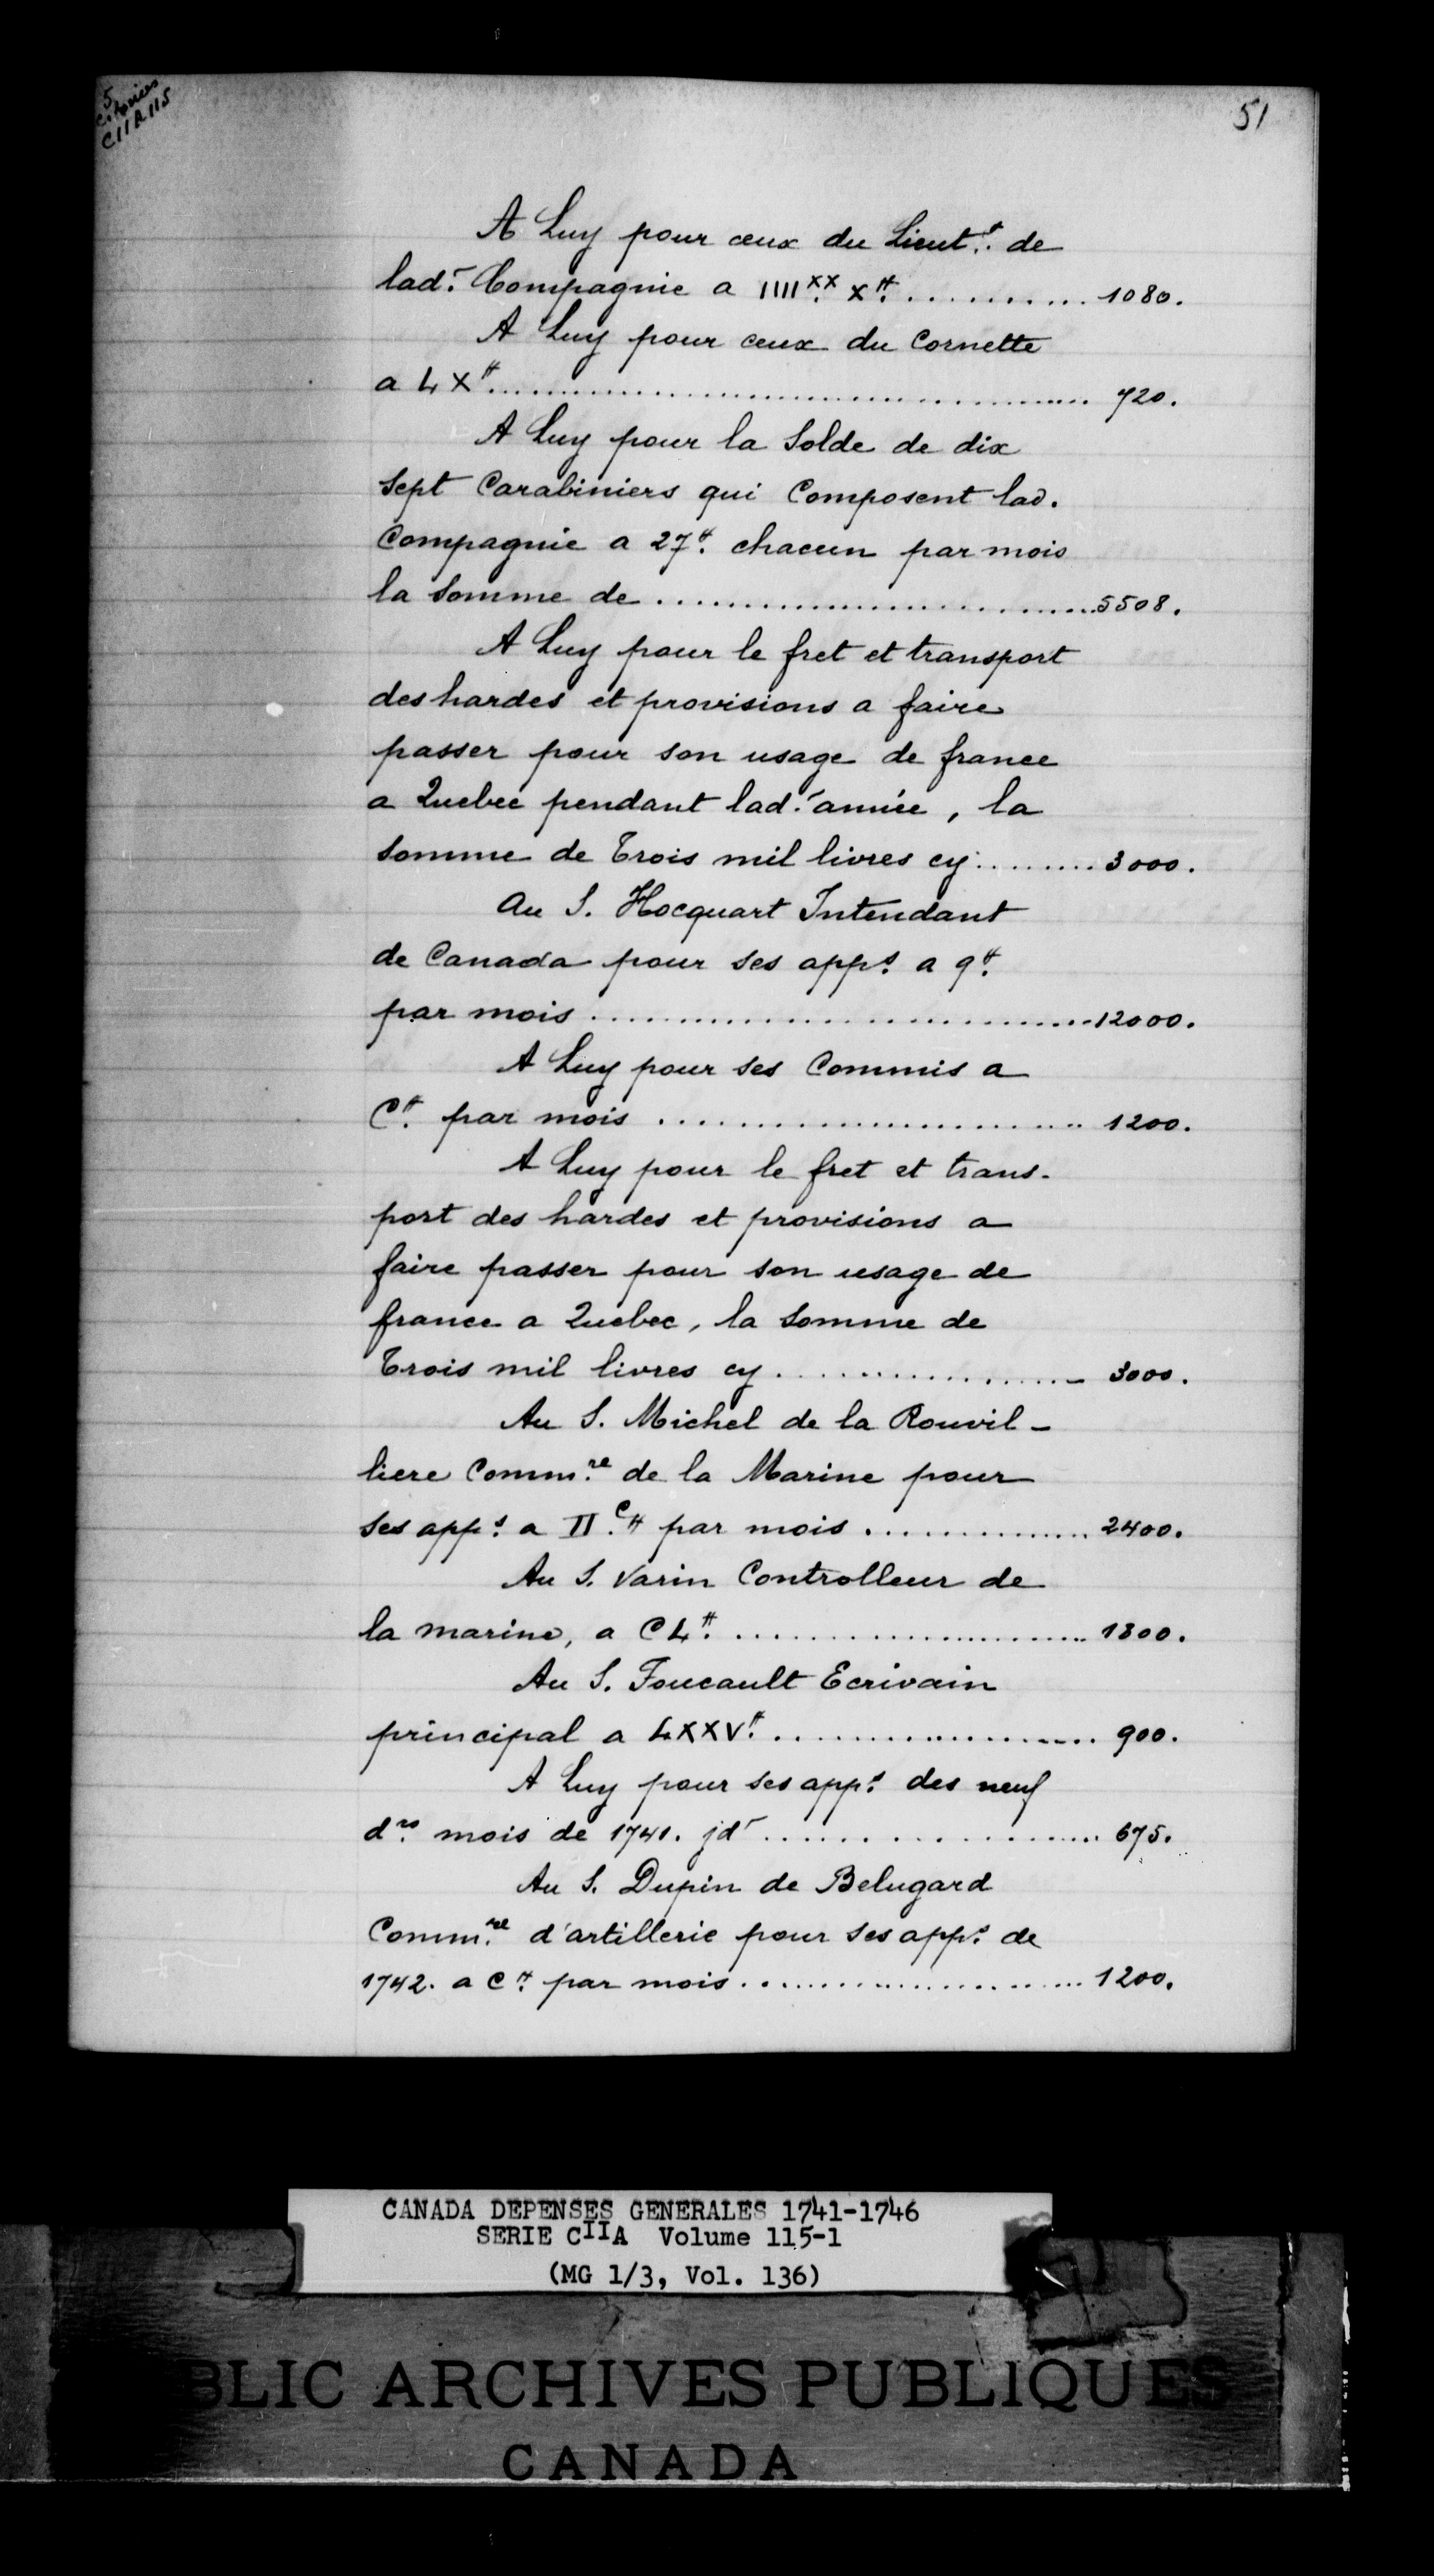 5
C11A 115
51
A Luy pour ceux du Lieut.t de
lad.e Compagnie a IIII.xx X.# .......... 1080.
A Luy pour ceux du Cornette
a LX# .......... 720.
A Luy pour la Solde de dix
sept Carabiniers qui Composent lad.
Compagnie a 27.# chacun par mois
la Somme de .......... 5508.
A Luy pour le fret et transport
des hardes et provisions a faire
passer pour son usage de france
a Quebec pendant lad. année, la
somme de Trois mil livres cy .......... 3000.
Au S. Hocquart Intendant
de Canada pour ses app.s a 9.#
par mois .......... 12000.
A Luy pour ses Commis a
C.# par mois .......... 1200.
A Luy pour le fret et trans-
port des hardes et provisions a
faire passer pour son usage de
france a Quebec, la Somme de
Trois mil livres cy .......... 3000.
Au S. Michel de la Rouvil-
liere Comm.re de la Marine pour
ses app.s a II.C# par mois .......... 2400.
Au S. Varin Controlleur de
la marine, a CL.# .......... 1800.
Au S. Foucault Ecrivain
principal a LXXV.# .......... 900.
A Luy pour ses app.s des neuf
d.rs mois de 1741. jd. .......... 675.
Au S. Dupin de Belugard
Comm.re d'artillerie pour ses app.s de
1742. a C.# par mois .......... 1200.
CANADA DEPENSES GENERALES 1741-1746
SERIE CIIA Volume 115-1
(MG 1/3, Vol. 136)
BLIC ARCHIVES PUBLIQUES
CANADA